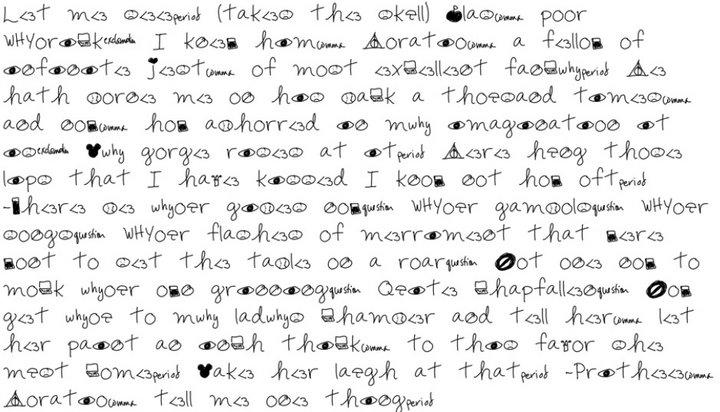 L<3t m<3 s<3<3period (tak<3s th<3 skull) Alascomma poor
WHYorickexclamation I kn<3w himcomma Horatiocomma a f<3llow of
infinit<3 j<3stcomma of most <3xc<3ll<3nt fancwhyperiod H<3
hath born<3 m<3 on his back a thousand tim<3scomma
and nowcomma how abhorr<3d in mwhy imagination it
isexclamation Mwhy gorg<3 ris<3s at itperiod H<3r<3 hung thos<3
lips that I hav<3 kiss<3d I know not how oftperiod
-Wh<3r<3 b<3 whyour gib<3s nowquestion WHYour gambolsquestion WHYour
songsquestion WHYour flash<3s of m<3rrim<3nt that w<3r<3
wont to s<3t th<3 tabl<3 on a roarquestion Not on<3 now to
mock whyour own grinningquestion Quit<3 chapfall<3nquestion Now
g<3t whyou to mwhy ladwhys chamb<3r and t<3ll h<3rcomma l<3t
h<3r paint an inch thickcomma to this favor sh<3
must com<3period Mak<3 h<3r laugh at thatperiod -Prith<3<3comma
Horatiocomma t<3ll m<3 on<3 thingperiod